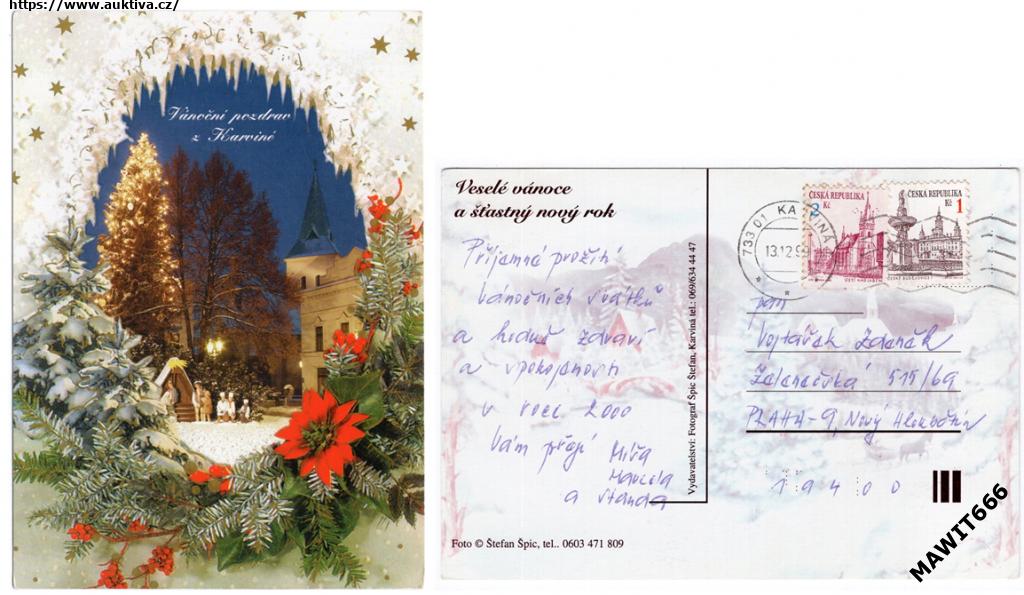 https://www.auktiva.cz/
Vánoční pozdrav
z Karviné
Veselé vánoce
a šťastný nový rok
Příjemné prožití
vánočních svátků
a hodně zdraví
a spokojenosti
v roce 2000
Vám přejí Míra
Marcela
a Standa
Vydavatelství: Fotograf Špic Štefan, Karviná tel.: 069/634 44 47
Foto © Štefan Špic, tel.. 0603 471 809
733 01 KARVINÁ
13.12.99
ČESKÁ REPUBLIKA
2 Kč
ČESKÁ REPUBLIKA
Kč 1
ČESKÉ BUDĚJOVICE
Vojtášek Zdeněk
515/69
PRAHA-9, Nový Hloubětín
19400
MAWIT666